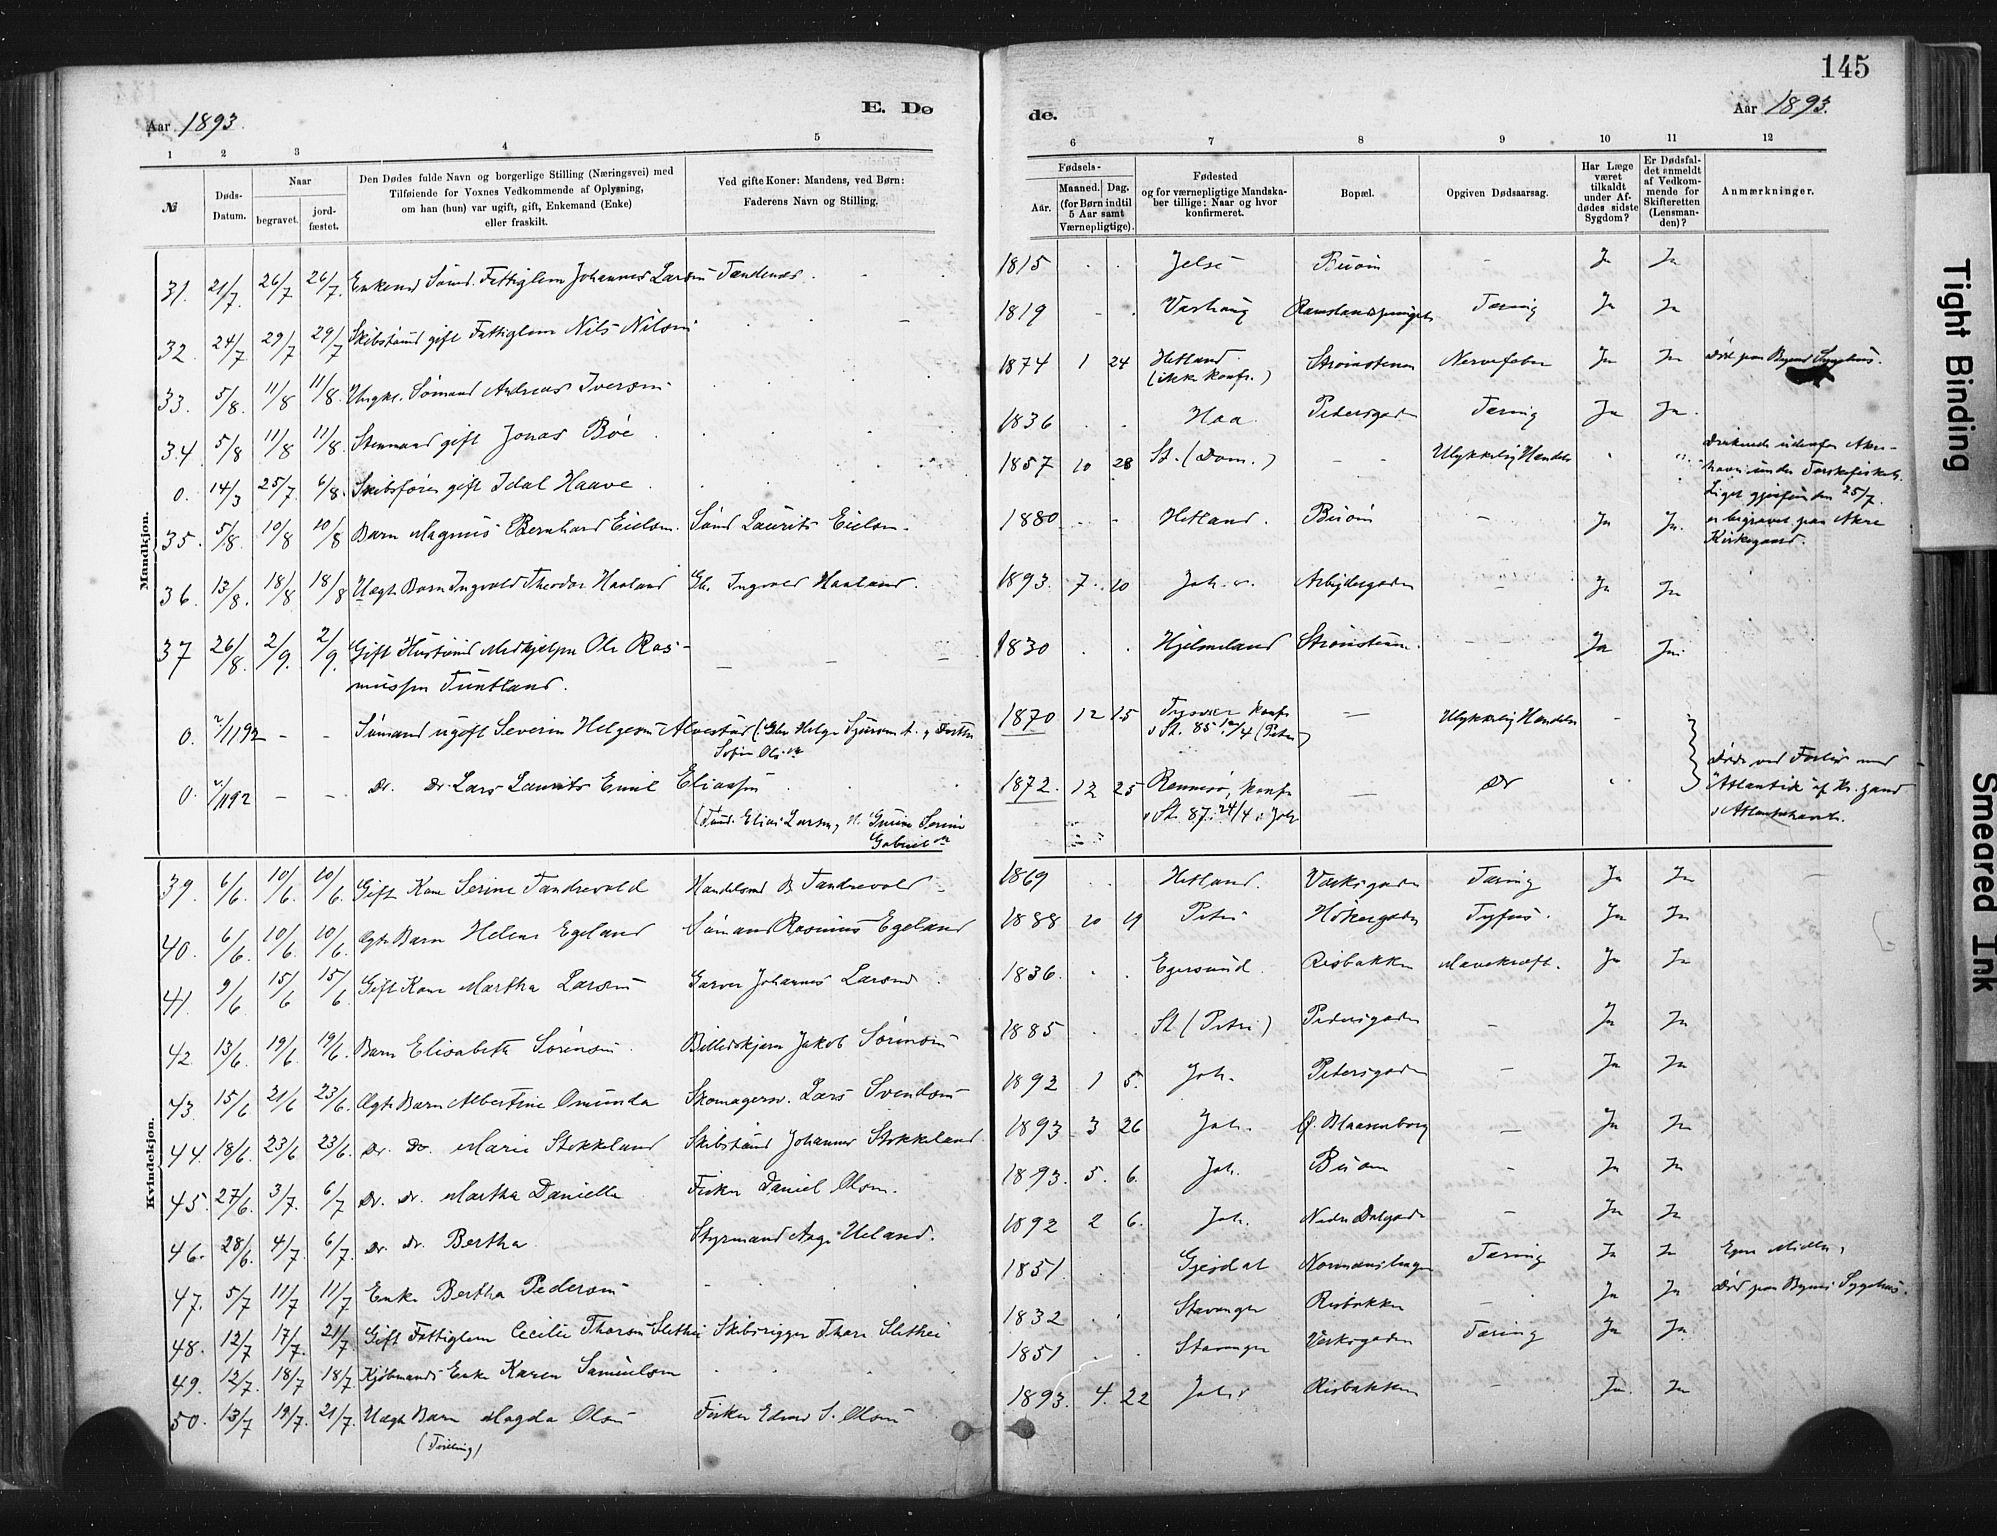 145
Aar 1893.
E. Dø
de.
Aar 1893.
1 2 3 4 5 6 7 8 9 10 11 12
№
Døds-
Datum.
Naar
begravet.
jord-
fæstet.
Den Dødes fulde Navn og borgerlige Stilling (Næringsvei) med
Tilføiende for Voxnes Vedkommende af Oplysning,
om han (hun) var ugift, gift, Enkemand (Enke)
eller fraskilt.
Ved gifte Koner: Mandens, ved Børn:
Faderens Navn og Stilling.
Fødsels-
Aar.
Maaned. Dag.
(for Børn indtil
5 Aar samt
Værnepligtige).
Fødested
og for værnepligtige Mandska-
ber tillige: Naar og hvor
konfirmeret.
Bopæl.
Opgiven Dødsaarsag.
Har Læge
været
tilkaldt
under Af-
dødes sidste
Sygdom?
Er Dødsfal-
det anmeldt
af Vedkom-
mende for
Skifteretten
(Lensman-
den)?
Anmærkninger.
Mandkjøn.
31. 21/7 26/7 26/7. Enkemd Sømd. Fattiglem Johannes Larsen Tandenes. 1815 Jelse Buøin - Ja Ja
32. 24/7 29/7 29/7 Skibstømd gift Fattiglem Nils Nilsen 1819 Varhaug Tæring Ja Ja
33. 5/8. 11/8 11/8. Ungk. Sømand Andreas Iversen 1874 1 24 Hetland (ikke konfr.) Strømstenen Nervefeber Ja Ja Død paa Byens Sygehus.
34. 5/8 11/8 11/8. gift Jonas Bøe 1836 Haa. Pedersgaden Tæring Ja Ja.
0. 14/3 25/7. 6/8. Skibsfører gift Idal Haave 1857 10 28 St. (Dom.) - Ulykkelig Hændelse
Druknede udenfor Akre-
havn under Torskefisket.
Liget gjenfunden 25/7.
er begravet paa Akre
Kirkegaard.
35. 5/8. 10/8 10/8 Barn Magnus Bernhard Eielsen. Sømd Laurits Eielsen. 1880 Hetland. Buøin - Ja Ja.
36. 13/8. 18/8 18/8 Uægt Barn Ingvald Theodor Haaland Gb. Ingvald Haaland. 1893. 7. 10 Joh. Arbeidergaden - Ja Ja
37 26/8. 2/9. 2/9. Gift Hustømd Medhjelper Ole Ras-
mussen Tuntland. 1830 Hjelmeland Strømstenen. - Ja Ja.
0. /1192 - - Sømand ugift Severin Helgesen Alvestad Helge Sjursen A. og Dorthe
Sofie 1870 12 15 Tysvær konfr. St. 85 /4 (Petri) - Ulykkelig Hændelse
0. /1192 - - Do. Do Lars Laurits Emil Eliassen
Elias Larsen, H. Gurine Serine
1872. 12 25 Rennesø, konfr. St. 87. 24/4 i Joh - Do
Døde ved Forlis med
"Atlantic" af Kr.sand
i Atlanterhavet.
Kvindekjøn.
39. 6/6. 10/6 10/6. Gift Kone Serine Tandrevold Handelsmd B Tandrevold 1869 Hetland. Verksgaden Tæring Ja Ja
40. 6/6 10/6 10/6. Ægte Barn Helene Egeland Sømand Rasmus Egeland 1888 10 19 Petri Høkergaden Tyfus. Ja Ja
41. 9/6 15/6 15/6. Gift Kone Martha Larsen Garver Johannes Larsen 1836. Egersund. Risbakken Mavekræft. Ja Ja
42. 13/6. 19/6. 19/6. Barn Elisabeth Sørensen. Billedskjærer Jakob Sørensen 1885 St (Petri) Pedersgaden - Ja Ja
43. 15/6 21/6 23/6. Ægte Barn Albertine Omunda Skomagersv. Lars Svendsen 1892 1 5. Joh. Pedersgaden - Ja Ja
44. 18/6. 23/6 23/6. Do. Do. Marie Stokkeland Skibstømd Johannes Stokkeland 1893 3 26 Joh. Ø. Blaasenborg - Ja Ja
45. 27/6. 3/7. 6/7 Do. Do. Martha Danielle Fisker Daniel Olsen. 1893. 5. 6. Joh. Buøen - Ja Ja
46. 28/6 4/7. 6/7. Do. Do. Bertha Styrmand Aage Ueland. 1892 2 6. Joh. Nedre Dalgade - Ja Ja
47. 5/7 11/7 11/7 Enke Bertha Pedersen 1831. Gjesdal Tæring Ja Ja Egne Midler.
48. 12/7 17/7. 21/7. Gift Fattiglem Cecilie Thorsen Slethei Skibsrigger Thore Slethei 1832 Stavanger Risbakken - Ja Ja Død paa Byens Sygehus.
49. 12/7. 18/7 18/7 Kjøbmands Enke Karen Samuelsen 1851 Stavanger Verksgaden Tæring Ja Ja.
50. 13/7 19/7. 21/7. Uægt Barn Magda Olsen (Tvilling) Fisker Edvard S. Olsen 1893. 4. 22 Joh. Risbakken - Ja. Ja
Tight Binding
Smeared Ink